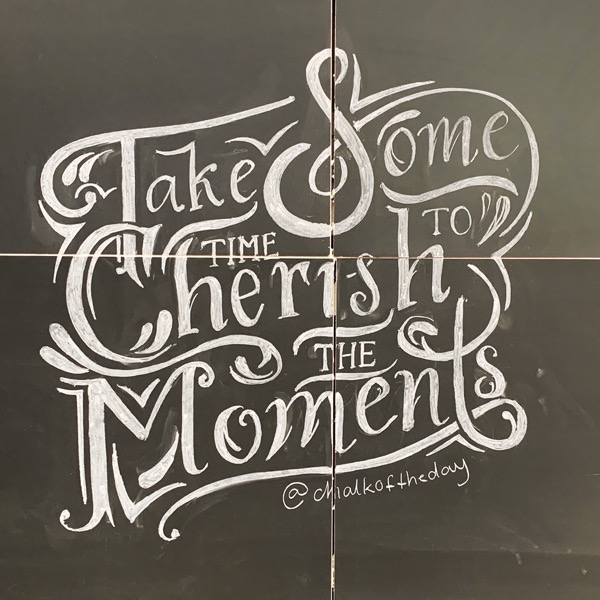 Take Some
TIME TO
Cherish
THE
Moments
@chalkoftheday